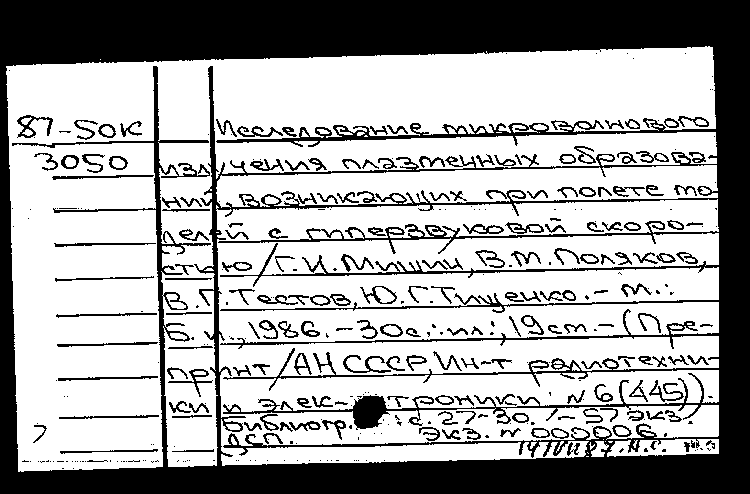 87-50к Исследование микроволнового
3050 излучения плазменных образова-
ний, возникающих при полете мо-
делей с гиперзвуковой скоро-
стью / Г.И. Мишин, В.М. Поляков,
В.Г. Тестов, Ю.Г. Тищенко. - М.:
Б. и., 1986. - 30 с.: ил.; 19 см. - (Пре-
принт / АН СССР, Ин-т радиотехни-
ки и элек- троники; № 6 (445)).
Библиогр.: с. 27-30. - 57 экз.
ДСП. Экз. № 000006.
14/VII 87. Н.С.